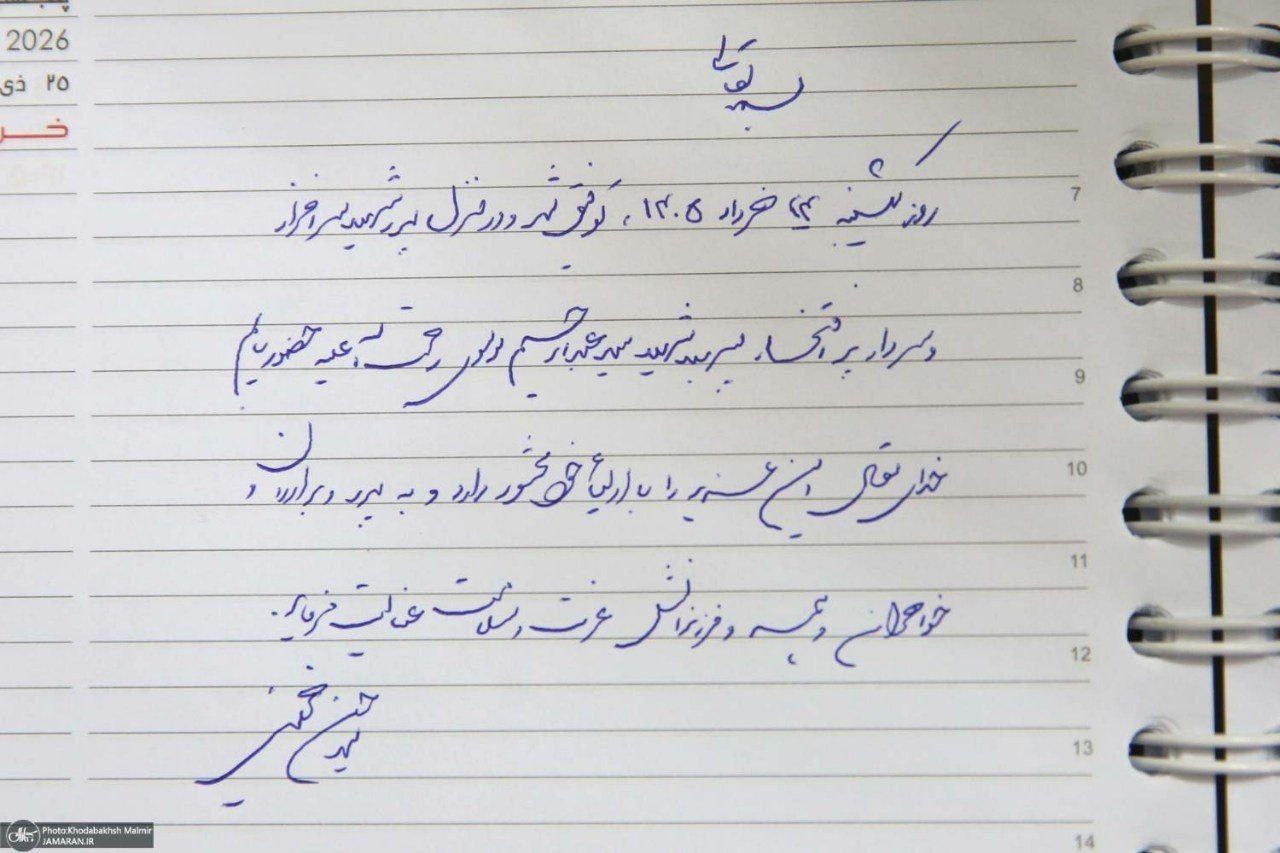 2026
۲۵ ذی
خر
بسمه تعالی
روز یکشنبه ۲۴ خرداد ۱۴۰۵، توفیق شد و در منزل پدر شهید سرافراز
و سردار پر افتخار سپهبد شهید سید عبدالرحیم موسوی رحمت الله علیه حضور یابم
خدای متعال این عزیز را با اولیاء خود محشور دارد و به پدر و برادران و
خواهران و همسر و فرزندانش عزت و سلامت عنایت فرماید.
سید حسن خمینی
7
8
9
10
11
12
13
14
Photo:Khodabakhsh Malmir
JAMARAN.IR